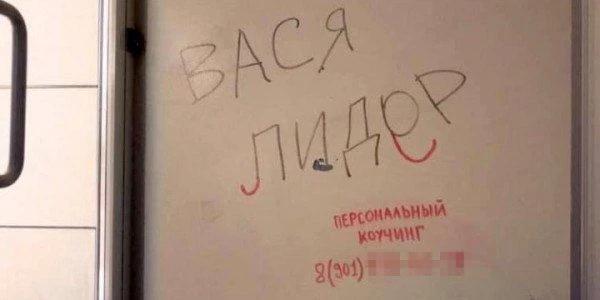 ВАСЯ
ЛИДЕР
ПЕРСОНАЛЬНЫЙ
КОУЧИНГ
8(901)